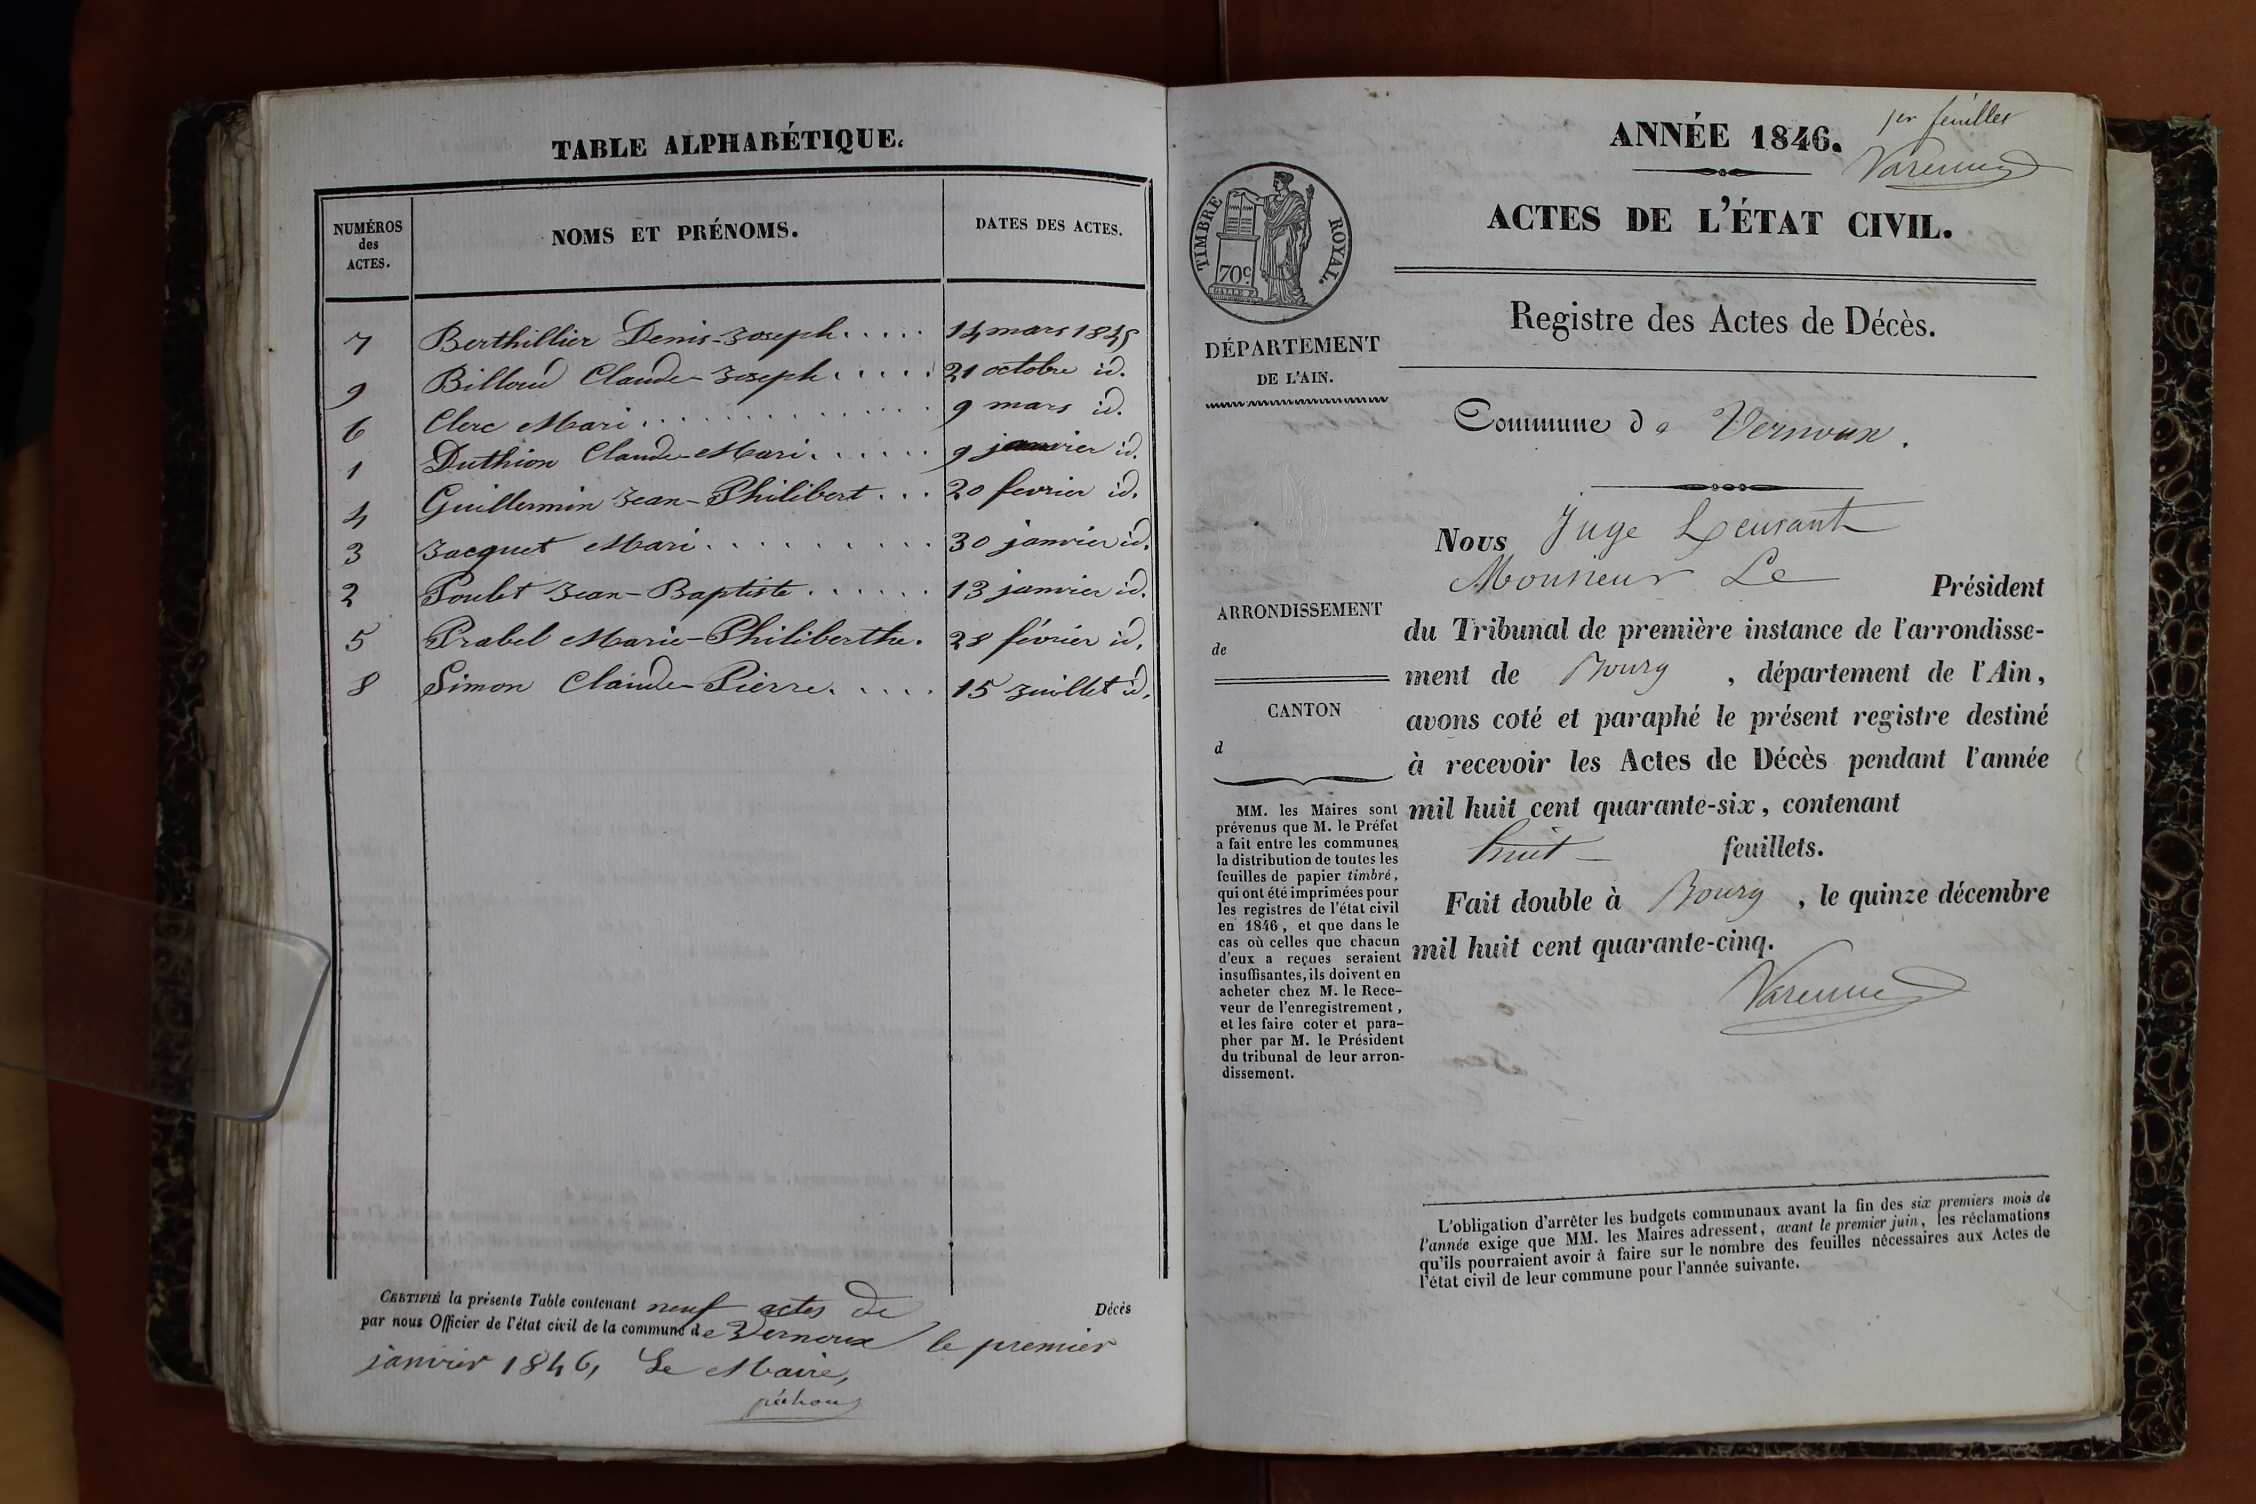 TABLE ALPHABÉTIQUE.
NUMÉROS
des
ACTES.
NOMS ET PRÉNOMS.
DATES DES ACTES.
7 Berthillier Denis-Joseph..... 14 mars 1845
9 Billoud Claude-Joseph..... 21 octobre id.
6 Clerc Mari............... 9 mars id.
1 Duthion Claude-Mari...... 9 janvier id.
4 Guillermin Jean-Philibert... 20 fevrier id.
3 Jacquet Mari.......... 30 janvier id.
2 Poulet Jean-Baptiste...... 13 janvier id.
5 Prabel Marie-Philiberthe. 28 février id.
8 Simon Claude-Pierre..... 15 Juillet id.
CERTIFIÉ la présente Table contenant neuf actes de Décès
par nous Officier de l'état civil de la commune de Vernoux le premier
janvier 1846, Le Maire,
1er feuillet
ANNÉE 1846.
Varenne
ACTES DE L'ÉTAT CIVIL.
TIMBRE ROYAL.
70c
GALLE F.
Registre des Actes de Décès.
DÉPARTEMENT
DE L'AIN.
Commune de Vernoux.
Nous Juge
Monsieur Le Président
du Tribunal de première instance de l'arrondisse-
ment de Bourg, département de l'Ain,
avons coté et paraphé le présent registre destiné
à recevoir les Actes de Décès pendant l'année
mil huit cent quarante-six, contenant
huit feuillets.
Fait double à Bourg, le quinze décembre
mil huit cent quarante-cinq.
Varenne
ARRONDISSEMENT
de
CANTON
d
MM. les Maires sont
prévenus que M. le Préfet
a fait entre les communes
la distribution de toutes les
feuilles de papier timbré,
qui ont été imprimées pour
les registres de l'état civil
en 1846, et que dans le
cas où celles que chacun
d'eux a reçues seraient
insuffisantes, ils doivent en
acheter chez M. le Rece-
veur de l'enregistrement,
et les faire coter et para-
pher par M. le Président
du tribunal de leur arron-
dissement.
L'obligation d'arrêter les budgets communaux avant la fin des six premiers mois de
l'année exige que MM. les Maires adressent, avant le premier juin, les réclamations
qu'ils pourraient avoir à faire sur le nombre des feuilles nécessaires aux Actes de
l'état civil de leur commune pour l'année suivante.